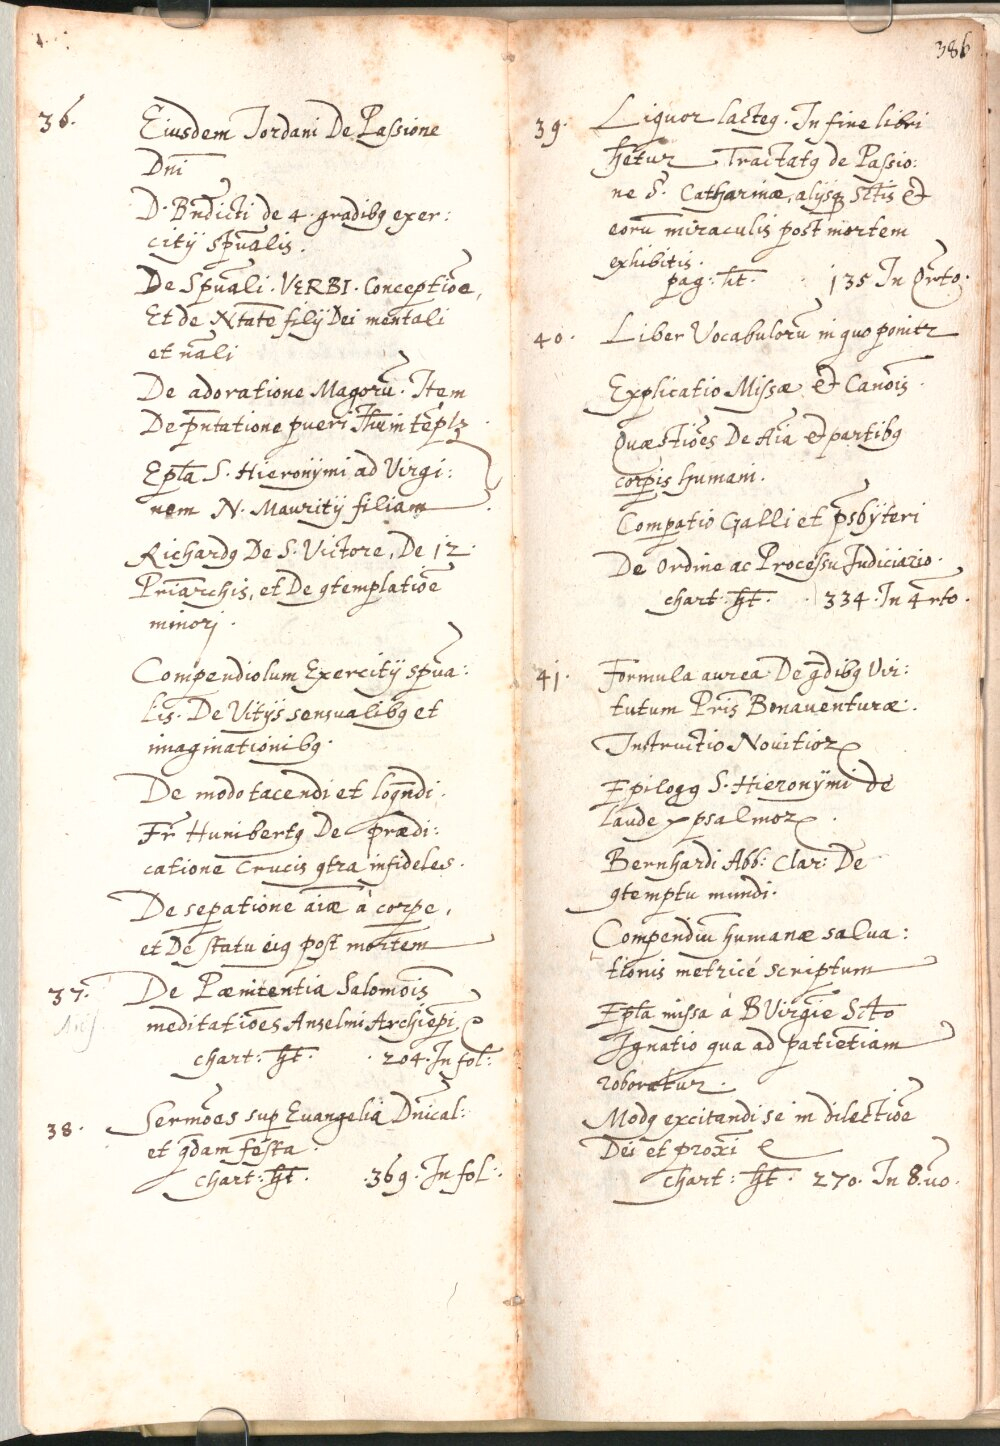 36. Eiusdem Jordani De Passione
Dni
D. Bndicti de 4. gradibg exer:
citÿ spualis.
De Spuali. VERBI. Conceptioe,
Et de Ntate filÿ Dei mentali
et nali
De adoratione Magoru. Item
De pntatione pueri Jhu in
Epla S. Hieronÿmi ad Virgi:
nem N. Mauritÿ filiam
Richardg De S. Victore, De 12.
Priarchis, et De gtemplatioe
minorj.
Compendiolum Exercitÿ spua:
lis. De Vitÿs sensualibg et
imaginationibg.
De modo tacendi et loqndi.
Fr Hunibertg De prædi:
catione Crucis gtra infideles.
De sepatione aiæ à corpe,
et De statu eig post mortem
37. De Pænitentia Salomois
meditatioes Anselmi Archiepi
chart: ht. 204. In fol:
38. Sermoes sup Evangelia Dnical:
et qdam festa.
chart: ht. 369. In fol:
386
39. Liquor lacteg. In fine libri
hetur Tractatg de Passio:
ne S. Catharinæ, alÿsq Sctis et
eoru miraculis post mortem
exhibitis.
pag: ht. 135 In Qrto.
40. Liber Vocabuloru in quo ponitr
Explicatio Missæ et Canois.
Quæstioes De Aia et partibg
corpis humani.
Compatio Galli et psbÿteri
De Ordine ac Processu Judiciario.
chart: ht. 334. In 4rto.
41. Formula aurea De gdibg Vir:
tutum Pris Bonauenturæ.
Instructio Nouitior
Epilogg S. Hieronÿmi de
laude psalmor.
Bernhardi Abb: Clar: De
gtemptu mundi.
Compendiu humanæ salua:
tionis metricé scriptum
Epla missa à B Virgie Scto
Ignatio qua ad patietiam
roboratur.
Modg excitandi se in dilectioe
Dei et proxi
chart: ht. 270. In 8.uo.